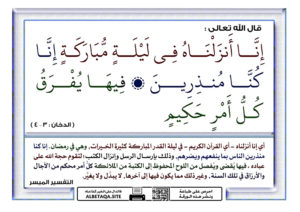 قال الله تعالى :
إِنَّا أَنزَلْنَاهُ فِى لَيْلَةٍ مُّبَارَكَةٍ إِنَّا
كُنَّا مُنذِرِينَ ۞ فِيهَا يُفْرَقُ
كُلُّ أَمْرٍ حَكِيمٍ
(الدخان: ٣-٤)
أي إنا أنزلناه - أي القرآن الكريم - في ليلة القدر المباركة كثيرة الخيرات، وهي في رمضان. إنا كنا
منذرين الناس بما ينفعهم ويضرهم، وذلك بإرسال الرسل وإنزال الكتب؛ لتقوم حجة الله على
عباده . فيها يقضى ويفصل من اللوح المحفوظ إلى الكتبة من الملائكة كل أمر محكم من الآجال
والأرزاق في تلك السنة، وغير ذلك مما يكون فيها إلى آخرها، لا يبدل ولا يغير.
التفسير الميسر
ALBETAQA.SITE